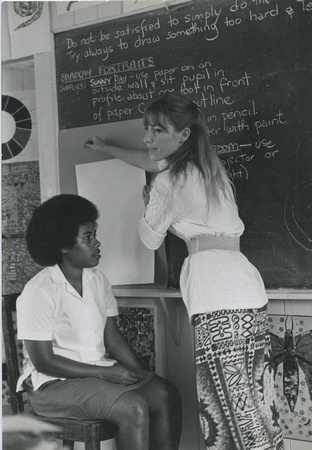 Do not be satisfied to simply do the
Try always to draw something too hard &
SHADOW PORTRAITS
SUPPLIES: SUNNY DAY - use paper on an
outside wall & sit pupil in
profile about one foot in front
of paper. outline
in pencil.
with paint
room - use
or